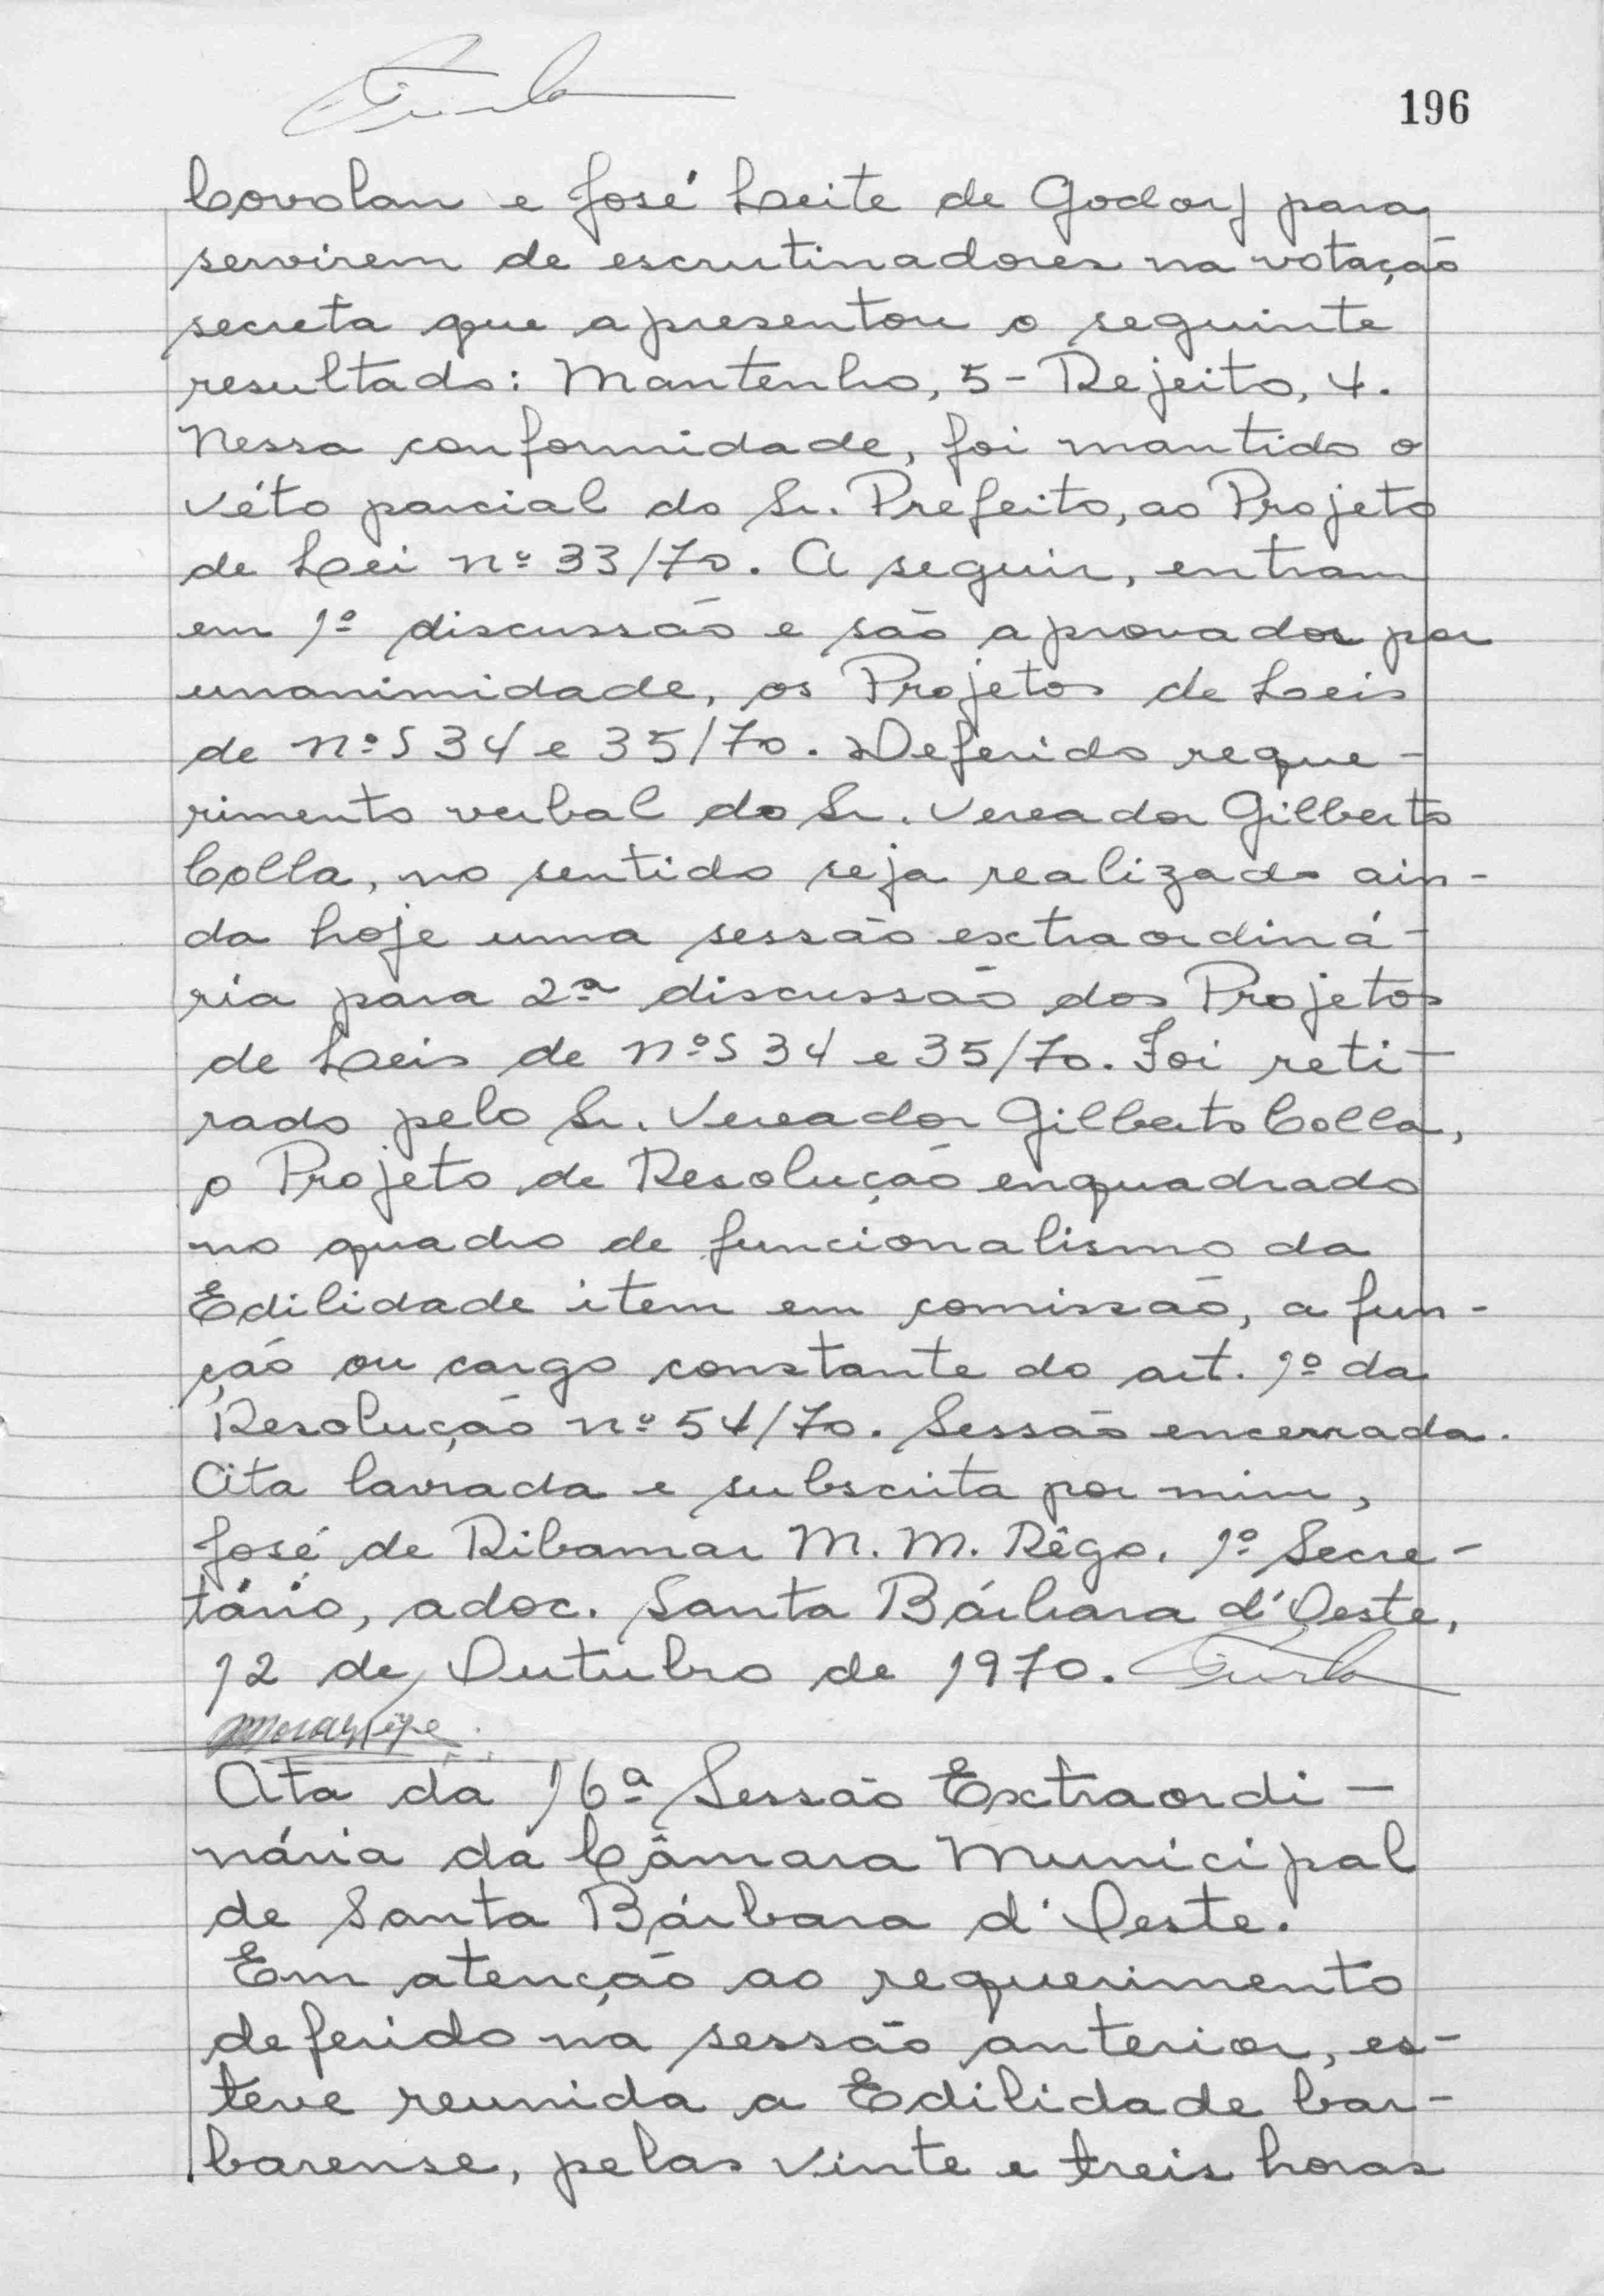 196
Covolan e José Leite de Godoy para
servirem de escrutinadores na votação
secreta que apresentou o seguinte
resultado: Mantenho, 5 - Rejeito, 4.
Nessa conformidade, foi mantido o
véto parcial do Sr. Prefeito, ao Projeto
de Lei nº 33/70. A seguir, entram
em 1º discussão e são aprovados por
unanimidade, os Projetos de Leis
de nºs 34 e 35/70. Deferido reque-
rimento verbal do Sr. Vereador Gilberto
Colla, no sentido seja realizado ain-
da hoje uma sessão extraordiná-
ria para 2ª discussão dos Projetos
de Leis de nºs 34 e 35/70. Foi reti-
rado pelo Sr. Vereador Gilberto Colla,
o Projeto de Resolução enquadrado
no quadro de funcionalismo da
Edilidade item em comissão, a fun-
ção ou cargo constante do art. 1º da
Resolução nº 54/70. Sessão encerrada.
Ata lavrada e subscrita por mim,
José de Ribamar M. M. Rêgo. 1º Secre-
tário, adoc. Santa Bárbara d'Oeste,
12 de Outubro de 1970.
Ata da 16ª Sessão Extraordi-
nária da Câmara Municipal
de Santa Bárbara d'Oeste.
Em atenção ao requerimento
deferido na sessão anterior, es-
teve reunida a Edilidade bar-
barense, pelas vinte e treis horas